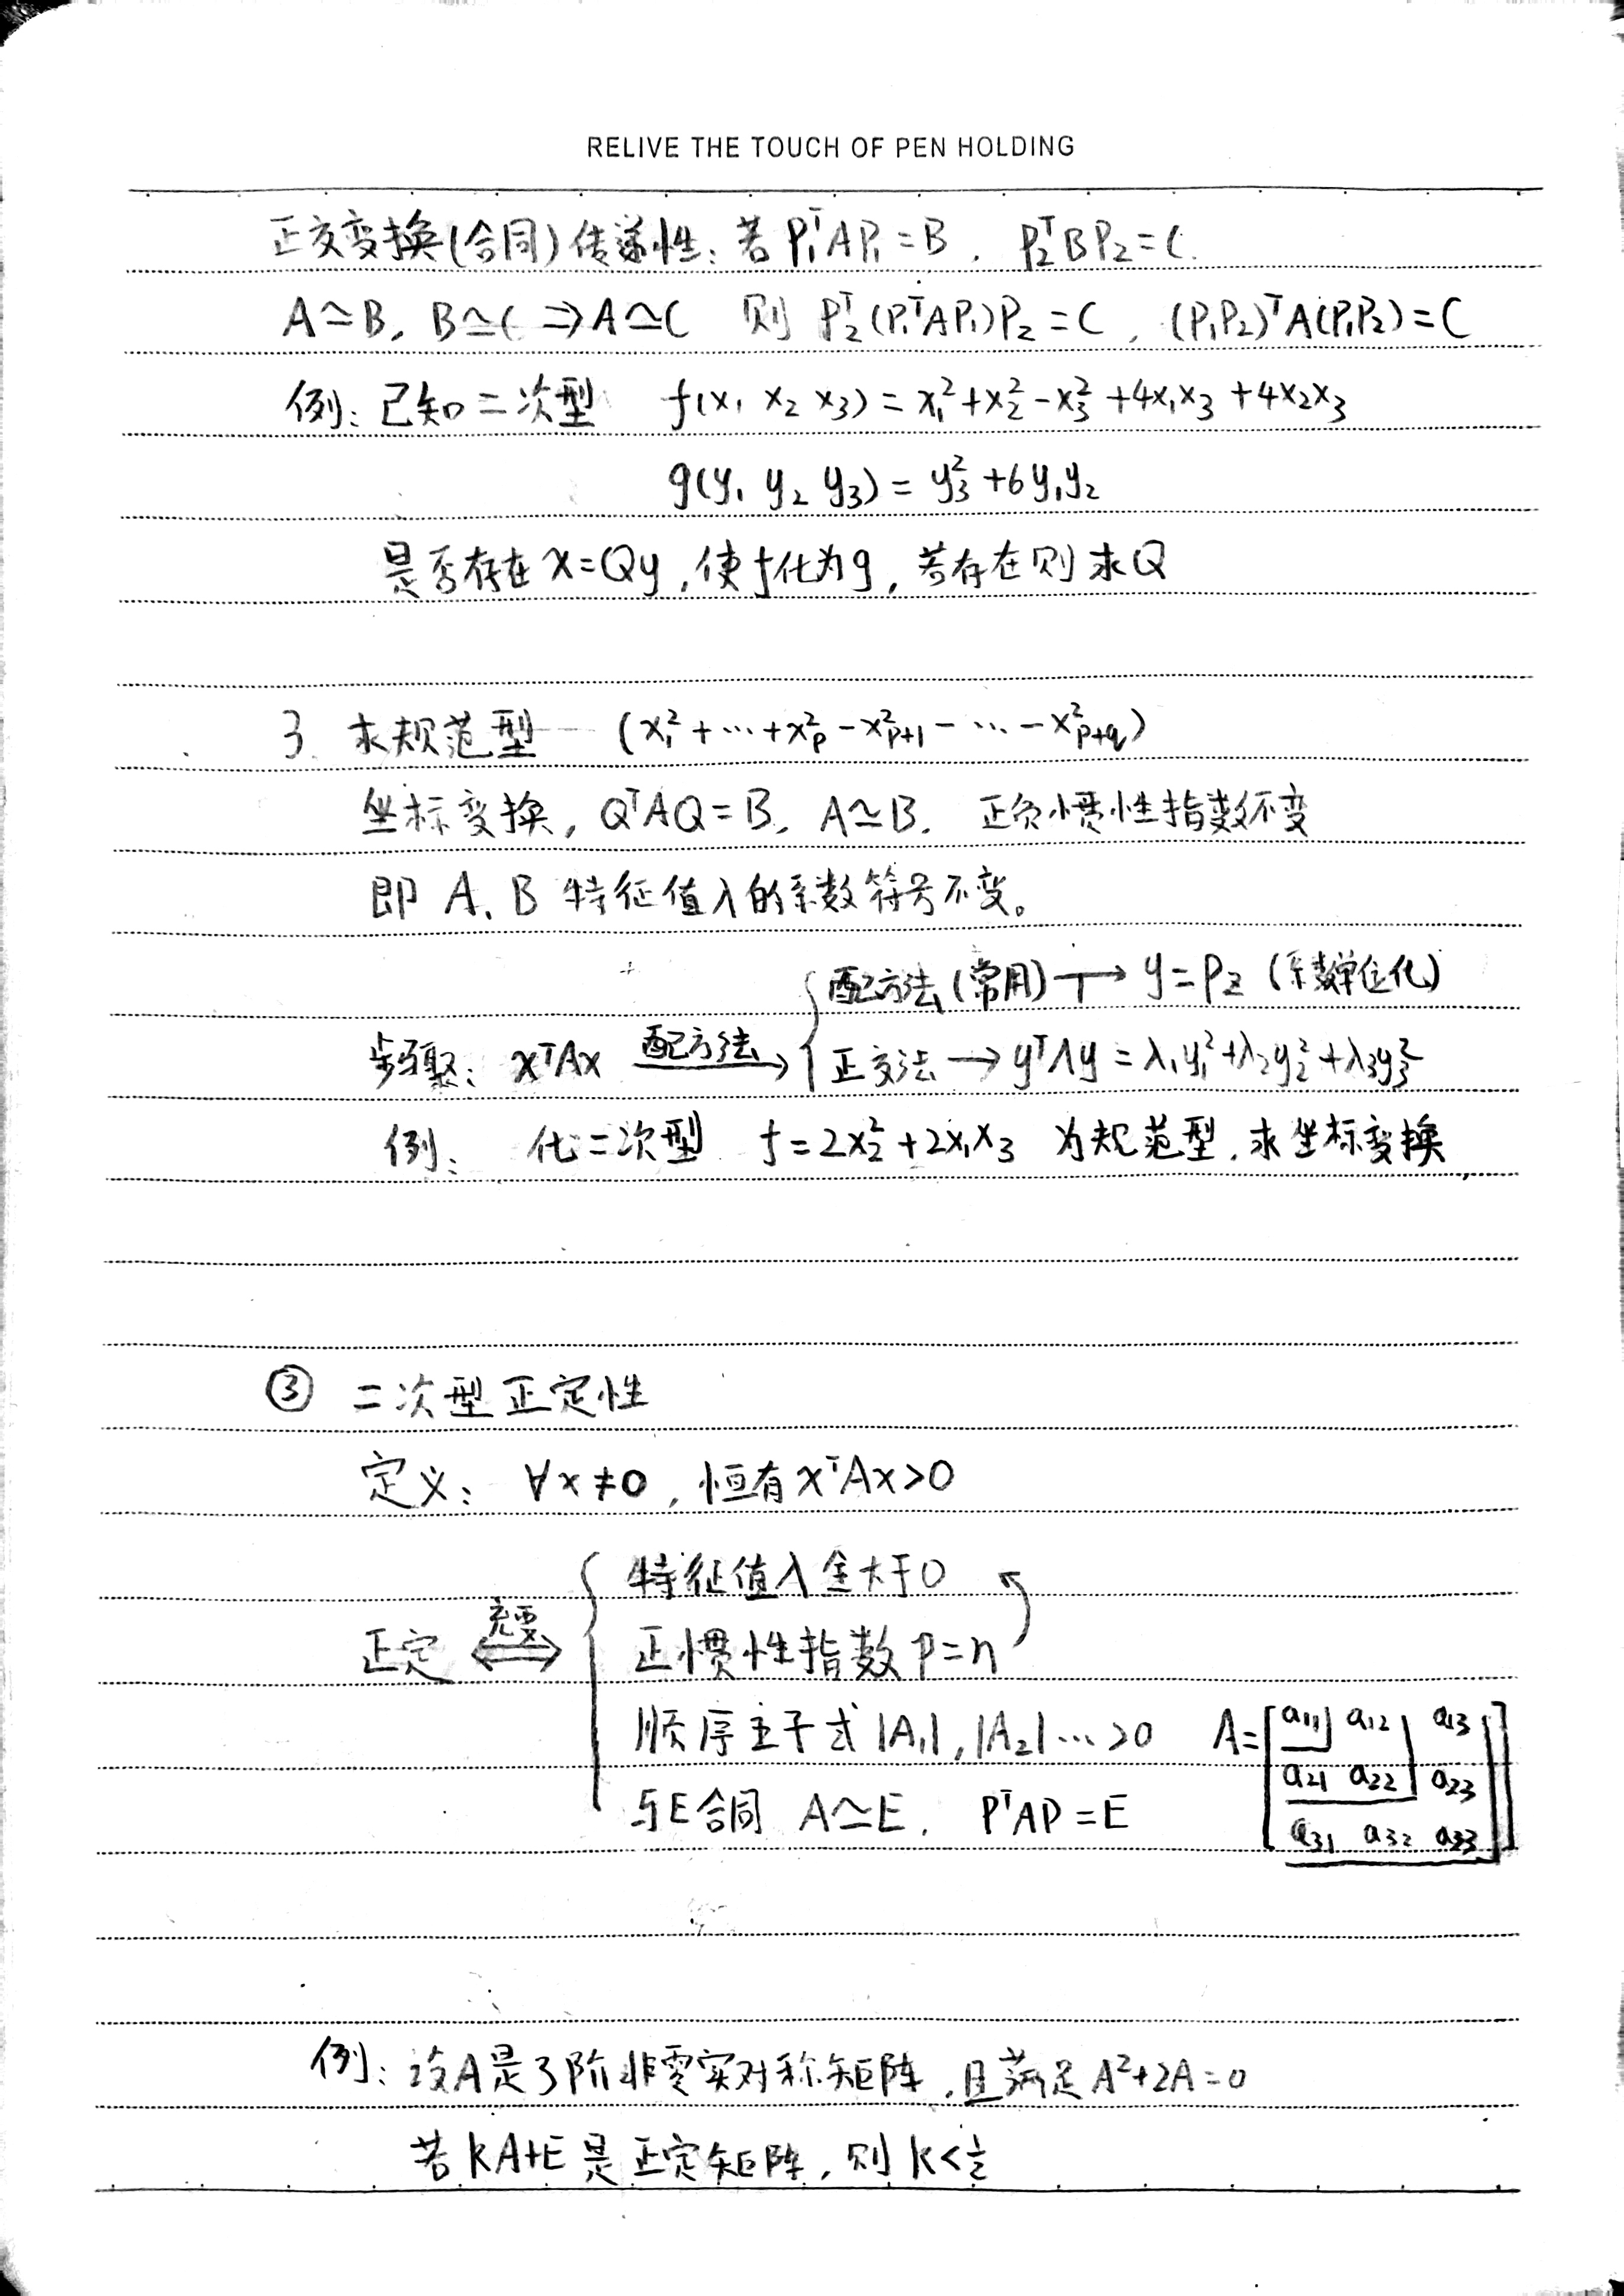 RELIVE THE TOUCH OF PEN HOLDING
正交变换(合同)传递性: 若 P₁ᵀAP₁=B, P₂ᵀBP₂=C.
A≃B, B≃C ⇒ A≃C 则 P₂ᵀ(P₁ᵀAP₁)P₂=C, (P₁P₂)ᵀA(P₁P₂)=C
例: 已知二次型 f(x₁ x₂ x₃)=x₁²+x₂²-x₃²+4x₁x₃+4x₂x₃
g(y₁ y₂ y₃)=y₃²+6y₁y₂
是否存在 x=Qy, 使f化为g, 若存在则求Q
3. 求规范型 (x₁²+…+xₚ²-xₚ₊₁²-…-x²_{p+q})
坐标变换, QᵀAQ=B, A≃B. 正负惯性指数不变
即 A、B 特征值λ的系数符号不变。
配方法(常用) → y=Pz (系数单位化)
步骤: xᵀAx 配方法→ 正交法 → yᵀΛy=λ₁y₁²+λ₂y₂²+λ₃y₃²
例: 化二次型 f=2x₂²+2x₁x₃ 为规范型, 求坐标变换
③ 二次型正定性
定义: ∀x≠0, 恒有xᵀAx>0
特征值λ全大于0
正定 ⟺充要 正惯性指数 p=n
顺序主子式 |A₁|, |A₂|…>0 A=[a₁₁ a₁₂ a₁₃
a₂₁ a₂₂ a₂₃
与E合同 A≃E, PᵀAP=E a₃₁ a₃₂ a₃₃]
例: 设A是3阶非零实对称矩阵, 且满足A²+2A=0
若kA+E是正定矩阵, 则 k<½